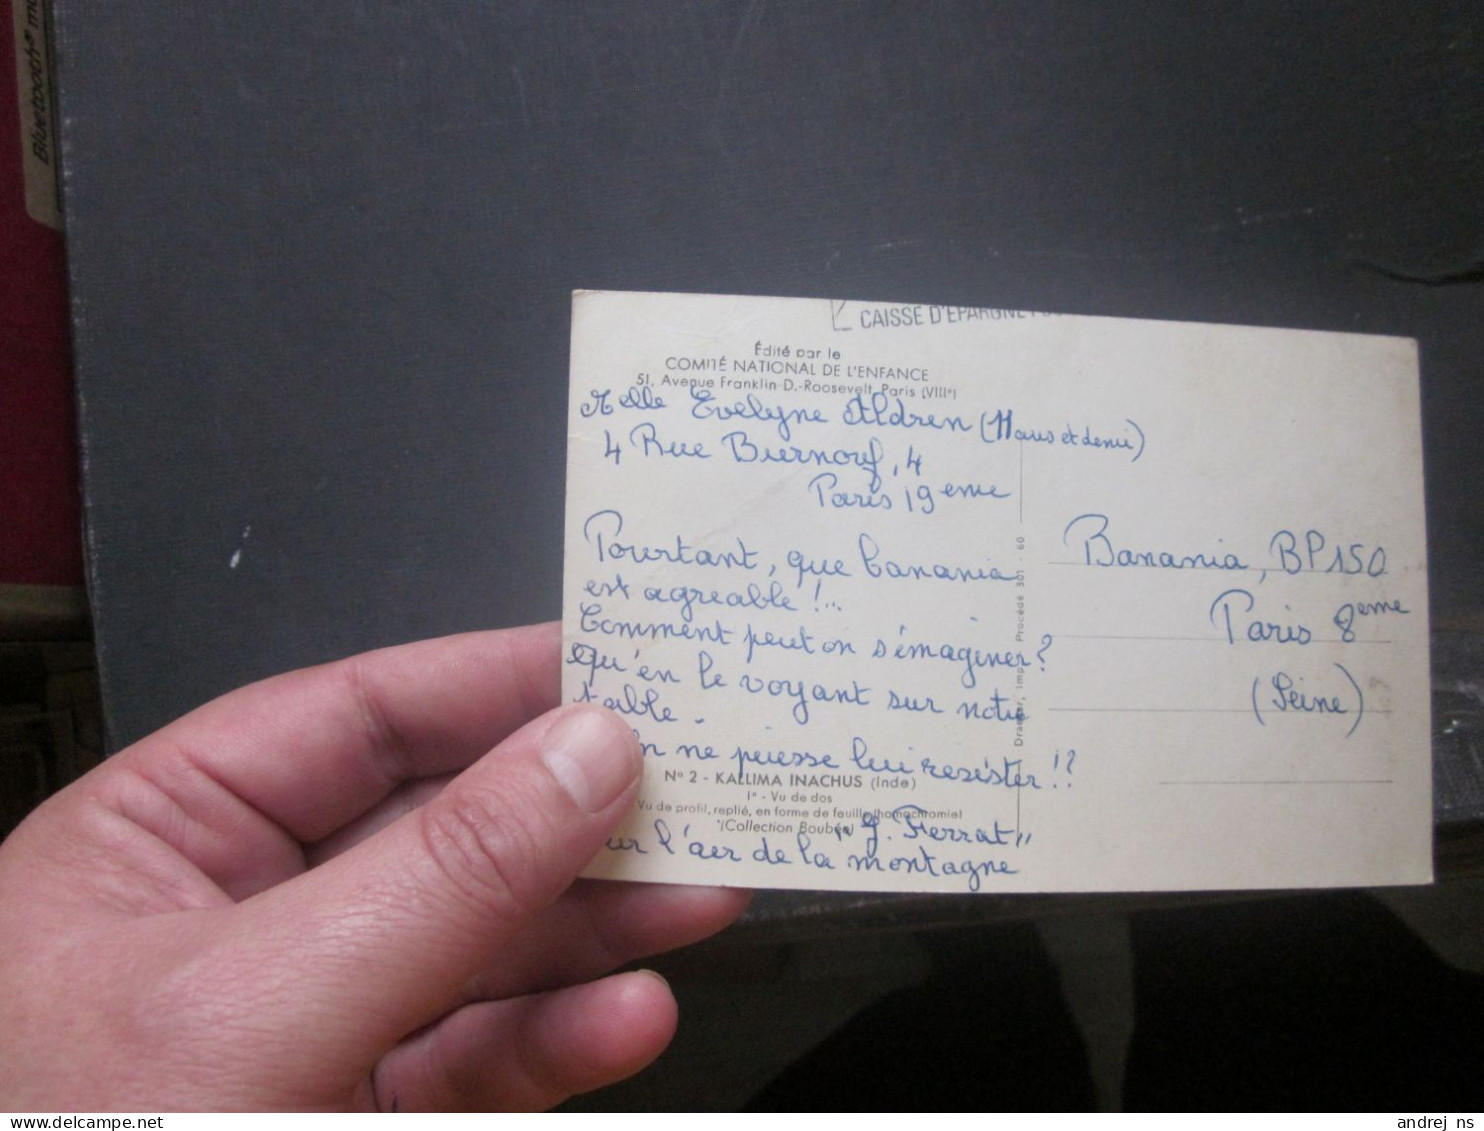 Bluetooth®
CAISSE D'ÉPARGNE
Édité par le
COMITÉ NATIONAL DE L'ENFANCE
51, Avenue Franklin-D.-Roosevelt, Paris (VIIIe)
Melle Evelyne Aldren (11 ans et demi)
4 Rue Burnouf, 4
Paris 19eme
Pourtant, que banania
est agreable !...
Comment peut on s'émaginer?
qu'en le voyant sur notre
table.
on ne puiesse lui resister !?
N° 2 - KALLIMA INACHUS (Inde)
1° - Vu de dos
Vu de profil, replié, en forme de feuille (homochromie)
(Collection Boubée)
"J. Ferrat"
sur l'aer de la montagne
Draeger, imp. Procédé 301 - 60
Banania, BP150
Paris 8eme
(Seine)
andrej_ns